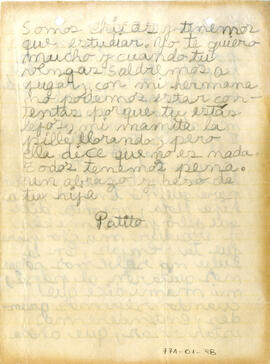 Somos chicas y tenemos
que estudiar. Yo te quiero
mucho y cuando tu
vengas saldremos a
jugar, con mi hermana
no podemos estar con-
tentas por que tu estás
lejos, mi mamita la
pille llorando, y pero
ella dice que no es nada.
todos tenemos pena.
un abrazo y beso de
tu hija
Patito